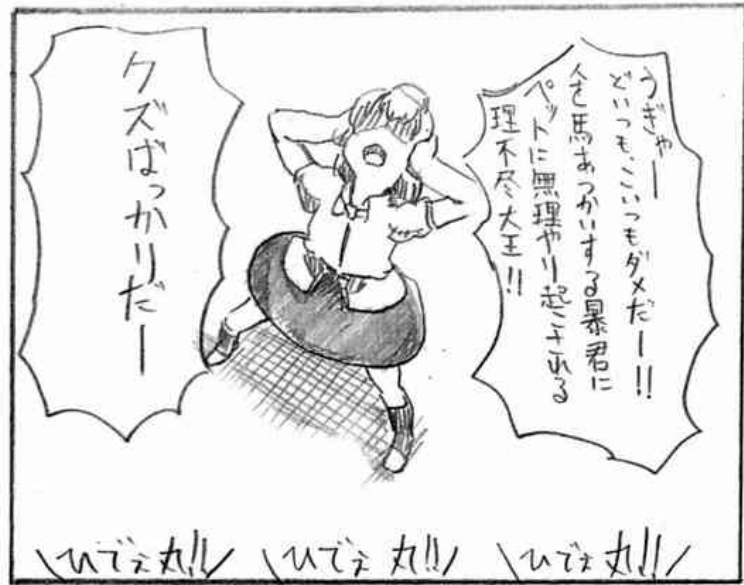 うぎゃー
どいつも、こいつもダメだー!!
人を馬あつかいする暴君に
ペットに無理やり起こされる
理不尽大王!!
クズばっかりだー
\ひでぇ丸!!/
\ひでぇ丸!!/
\ひでぇ丸!!/